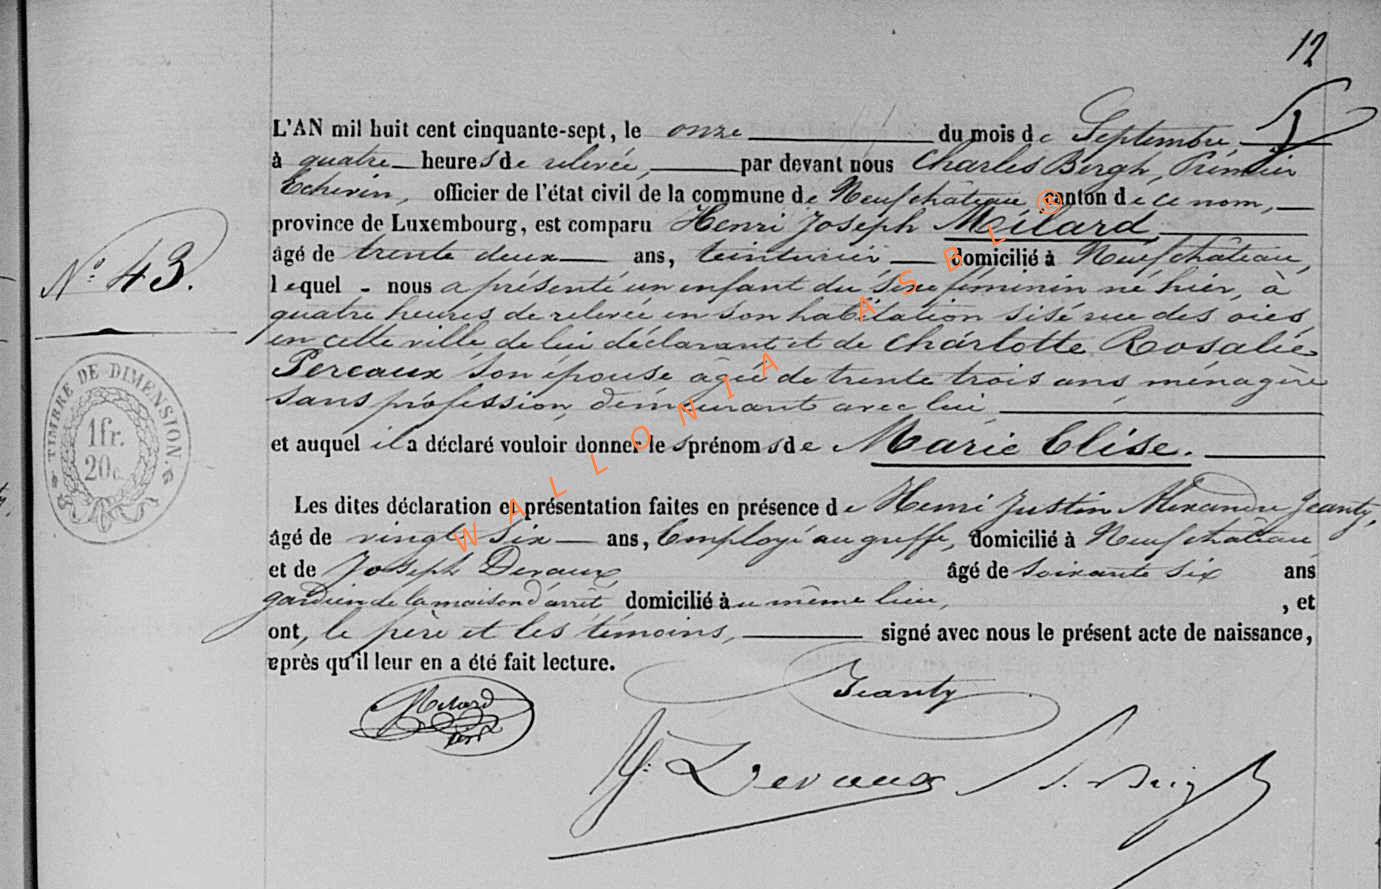 12
L'AN mil huit cent cinquante-sept, le onze du mois de Septembre,
à quatre heures de relevée, par devant nous Charles Bergh, Prémier
Echevin, officier de l'état civil de la commune de Neufchâteau canton de ce nom,
province de Luxembourg, est comparu Henri Joseph Mélard
âgé de trente deux ans, teinturier domicilié à Neufchâteau,
N.° 43.
lequel - nous a présenté un enfant du sexe féminin né hier, à
quatre heures de relevée en son habitation sise rue des oies,
en cette ville de lui déclarant et de Charlotte Rosalie
Pereaux son épouse âgée de trente trois ans ménagère
sans profession, demeurant avec lui
et auquel il a déclaré vouloir donner les prénoms de Marie Elise.
TIMBRE DE DIMENSION.
1fr.
20c.
Les dites déclaration et présentation faites en présence de Henri Justin Alexandre Jeanty,
âgé de vingt six ans, Employé au greffe, domicilié à Neufchâteau
et de Joseph Devaux, âgé de soixante six ans
gardien de la maison d'arrêt domicilié au même lieu, , et
ont, le père et les témoins, signé avec nous le présent acte de naissance,
après qu'il leur en a été fait lecture.
Jeanty
Melard
J. Devaux
WALLONIA ASBL ®